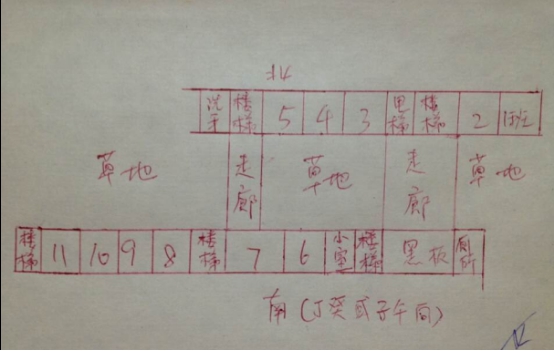 北
洗手 楼梯 5 4 3 电梯 楼梯 2 1班
草地 走廊 草地 走廊 草地
楼梯 11 10 9 8 楼梯 7 6 小室 楼梯 黑板 厕所
南(丁癸或子午向)